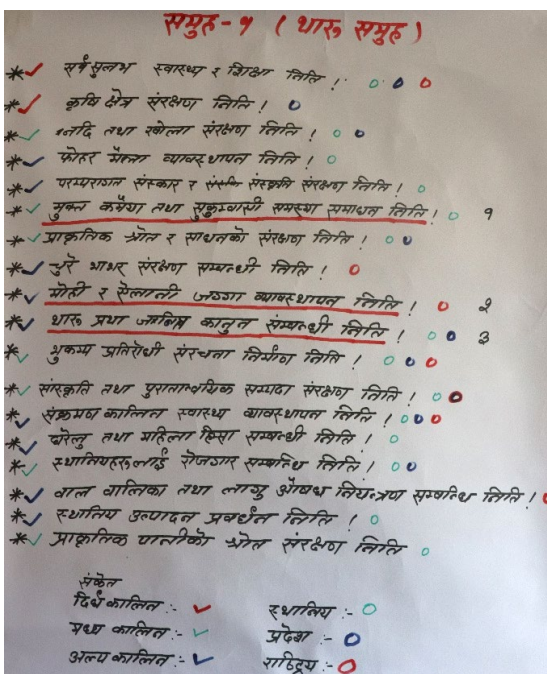 समुह-१ (थारू समुह)
* सर्वसुलभ स्वास्थ्य र शिक्षा निति !
* कृषि क्षेत्र संरक्षण निति !
* नदि तथा खोला संरक्षण निति !
* फोहर मैला व्यावस्थापन निति !
* परम्परागत संस्कार र संस्कृति संरक्षण निति !
* मुक्त कमैया तथा सुकुम्वासी समस्या समाधन निति ! १
* प्राकृतिक श्रोत र साधनको संरक्षण निति !
* चुरे भाभर संरक्षण सम्बन्धी निति !
* मोही र ऐलानी जग्गा व्यावस्थापन निति ! २
* थारू प्रथा जनित कानुन संम्वन्धी निति ! ३
* भुकम्प प्रतिरोधी संरचना निर्माण निति !
* सांस्कृति तथा पुरातात्वयिक सम्पदा संरक्षण निति !
* संक्रमण कालिन स्वास्थ्य व्यावस्थापन निति !
* घरेलु तथा महिला हिंसा सम्बन्धी निति !
* स्थानियहरूलाई रोजगार सम्बन्धि निति !
* वाल वालिका तथा लागु औषध नियन्त्रण सम्बन्धि निति !
* स्थानिय उत्पादन प्रवर्धन निति !
* प्राकृतिक पानीको श्रोत संरक्षण निति
संकेत
दिर्घ कालिन :- ✓
मध्य कालिन :- ✓
अल्प कालिन :- ✓
स्थानिय :- O
प्रदेश :- O
राष्ट्रिय :- O